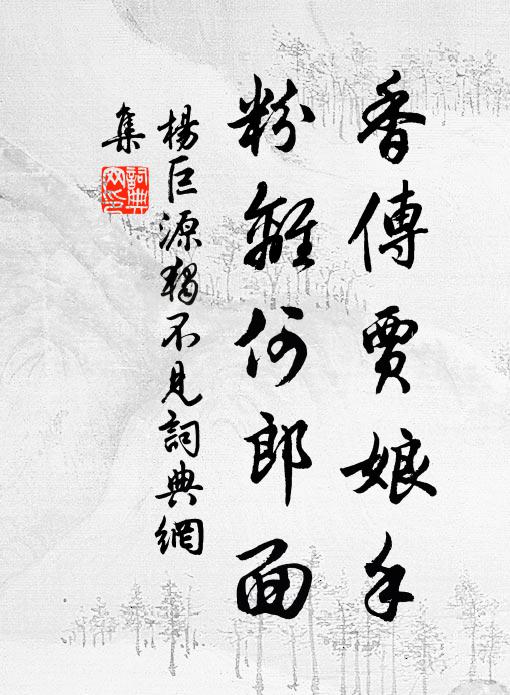 香傳賈娘手
粉離何郎面
楊巨源獨不見詞典網
集
詞典
網印